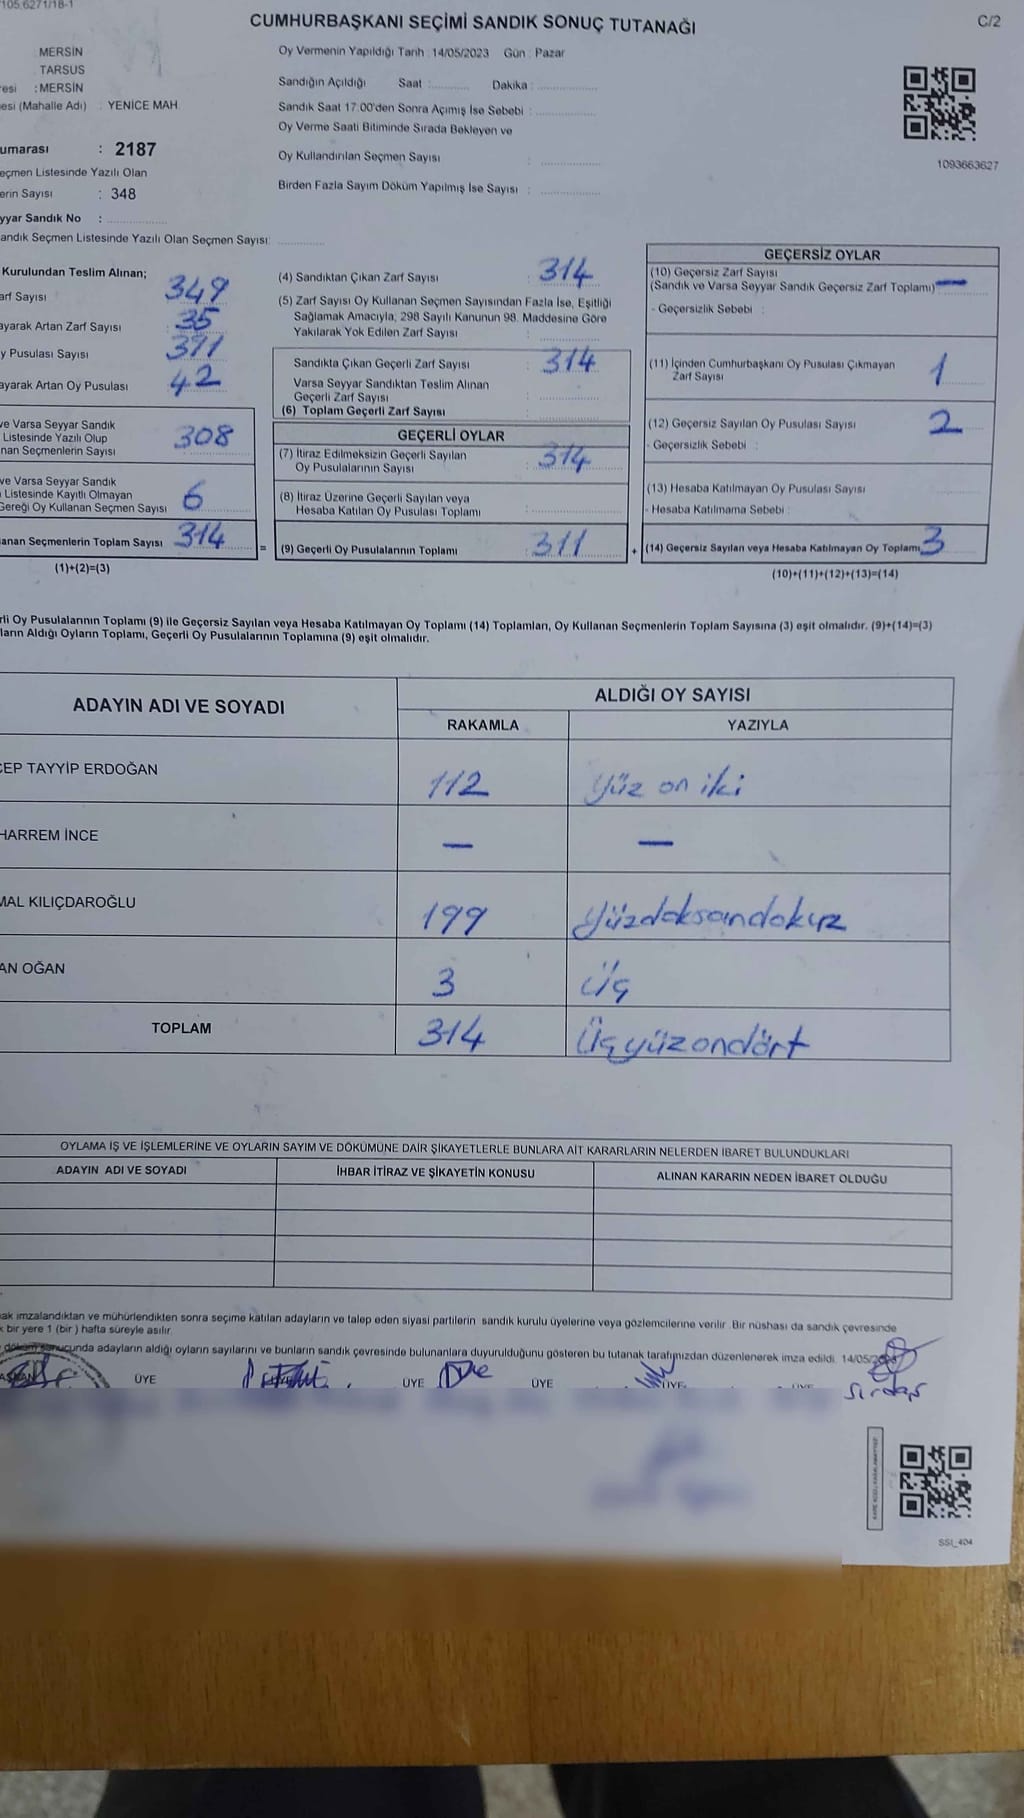 105.6271/18-1
CUMHURBAŞKANI SEÇİMİ SANDIK SONUÇ TUTANAĞI
C/2
MERSİN
TARSUS
resi : MERSİN
esi (Mahalle Adı) : YENİCE MAH.
Oy Vermenin Yapıldığı Tarih : 14/05/2023 Gün : Pazar
Sandığın Açıldığı Saat : Dakika :
Sandık Saat 17:00'den Sonra Açımış İse Sebebi :
Oy Verme Saati Bitiminde Sırada Bekleyen ve
Oy Kullandırılan Seçmen Sayısı :
Birden Fazla Sayım Döküm Yapılmış İse Sayısı :
1093663627
umarası : 2187
eçmen Listesinde Yazılı Olan
erin Sayısı : 348
yyar Sandık No :
andık Seçmen Listesinde Yazılı Olan Seçmen Sayısı:
Kurulundan Teslim Alınan;
arf Sayısı 349
ayarak Artan Zarf Sayısı 35
y Pusulası Sayısı 391
ayarak Artan Oy Pusulası 42
ve Varsa Seyyar Sandık
Listesinde Yazılı Olup
nan Seçmenlerin Sayısı 308
ve Varsa Seyyar Sandık
Listesinde Kayıtlı Olmayan
Gereği Oy Kullanan Seçmen Sayısı 6
anan Seçmenlerin Toplam Sayısı 314
(1)+(2)=(3)
(4) Sandıktan Çıkan Zarf Sayısı : 314
(5) Zarf Sayısı Oy Kullanan Seçmen Sayısından Fazla İse, Eşitliği
Sağlamak Amacıyla, 298 Sayılı Kanunun 98. Maddesine Göre
Yakılarak Yok Edilen Zarf Sayısı :
Sandıkta Çıkan Geçerli Zarf Sayısı : 314
Varsa Seyyar Sandıktan Teslim Alınan
Geçerli Zarf Sayısı :
(6) Toplam Geçerli Zarf Sayısı :
GEÇERLİ OYLAR
(7) İtiraz Edilmeksizin Geçerli Sayılan
Oy Pusulalarının Sayısı : 314
(8) İtiraz Üzerine Geçerli Sayılan veya
Hesaba Katılan Oy Pusulası Toplamı :
= (9) Geçerli Oy Pusulalarının Toplamı : 311 +
GEÇERSİZ OYLAR
(10) Geçersiz Zarf Sayısı
(Sandık ve Varsa Seyyar Sandık Geçersiz Zarf Toplamı) —
- Geçersizlik Sebebi :
(11) İçinden Cumhurbaşkanı Oy Pusulası Çıkmayan
Zarf Sayısı 1
(12) Geçersiz Sayılan Oy Pusulası Sayısı 2
- Geçersizlik Sebebi :
(13) Hesaba Katılmayan Oy Pusulası Sayısı
- Hesaba Katılmama Sebebi :
(14) Geçersiz Sayılan veya Hesaba Katılmayan Oy Toplamı 3
(10)+(11)+(12)+(13)=(14)
rli Oy Pusulalarının Toplamı (9) ile Geçersiz Sayılan veya Hesaba Katılmayan Oy Toplamı (14) Toplamları, Oy Kullanan Seçmenlerin Toplam Sayısına (3) eşit olmalıdır. (9)+(14)=(3)
ların Aldığı Oyların Toplamı, Geçerli Oy Pusulalarının Toplamına (9) eşit olmalıdır.
ADAYIN ADI VE SOYADI
ALDIĞI OY SAYISI
RAKAMLA YAZIYLA
CEP TAYYİP ERDOĞAN 112 Yüz on iki
HARREM İNCE — —
MAL KILIÇDAROĞLU 199 Yüzdoksandokuz
AN OĞAN 3 Üç
TOPLAM 314 Üçyüzondört
OYLAMA İŞ VE İŞLEMLERİNE VE OYLARIN SAYIM VE DÖKÜMÜNE DAİR ŞİKAYETLERLE BUNLARA AİT KARARLARIN NELERDEN İBARET BULUNDUKLARI
ADAYIN ADI VE SOYADI İHBAR İTİRAZ VE ŞİKAYETİN KONUSU ALINAN KARARIN NEDEN İBARET OLDUĞU
ak imzalandıktan ve mühürlendikten sonra seçime katılan adayların ve talep eden siyasi partilerin sandık kurulu üyelerine veya gözlemcilerine verilir. Bir nüshası da sandık çevresinde
k bir yere 1 (bir ) hafta süreyle asılır.
döküm sonucunda adayların aldığı oyların sayılarını ve bunların sandık çevresinde bulunanlara duyurulduğunu gösteren bu tutanak tarafımızdan düzenlenerek imza edildi. 14/05/2023
AŞKAN ÜYE ÜYE ÜYE ÜYE ÜYE
Sırdaş
SSI_404